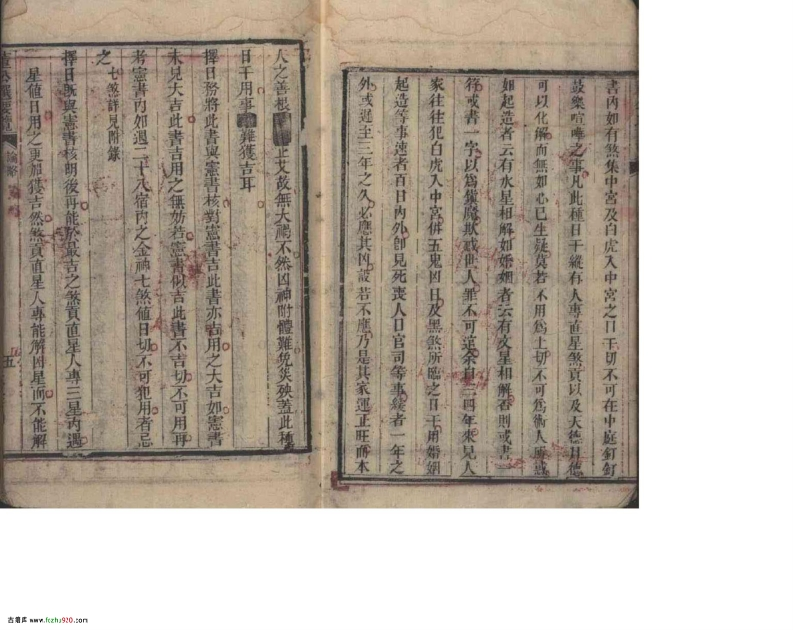 書內如有煞集中宮及白虎入中宮之日干切不可在中庭釘釘
鼓樂喧嘩之事凡此種日干縱有人專直星煞貢以及天德月德
可以化解而無如心已生疑莫若不用爲上切不可爲術人所惑
如起造者云有水星相解如婚姻者云有文星相解否則或書一
符或書一字以爲鎮魔欺哉世人罪不可逭余自三四年來見人
家往往犯白虎入中宮併五鬼凶日及黑煞所臨之日干用婚姻
起造等事速者百日內外卽見死喪人口官司等事緩者一年之
外或遲至三年之久必應其凶設若不應乃是其家運正旺而木
人之善根止艾故無大禍不然凶神附體難免災殃蓋此種
日干用事難獲吉耳
擇日務將此書與憲書核對憲書吉此書亦吉用之大吉如憲書
未見大吉此書吉用之無妨若憲書似吉此書不吉切不可用再
考憲書內如遇二十八宿內之金神七煞値日切不可犯用者忌
之七煞詳見附錄
擇日旣與憲書核明後再能於最吉之煞貢直星人專三星內遇
星値日用之更加獲吉然煞貢直星人專能解凶星而不能解
要覽
論略
五
古籍库 www.fczhu920.com